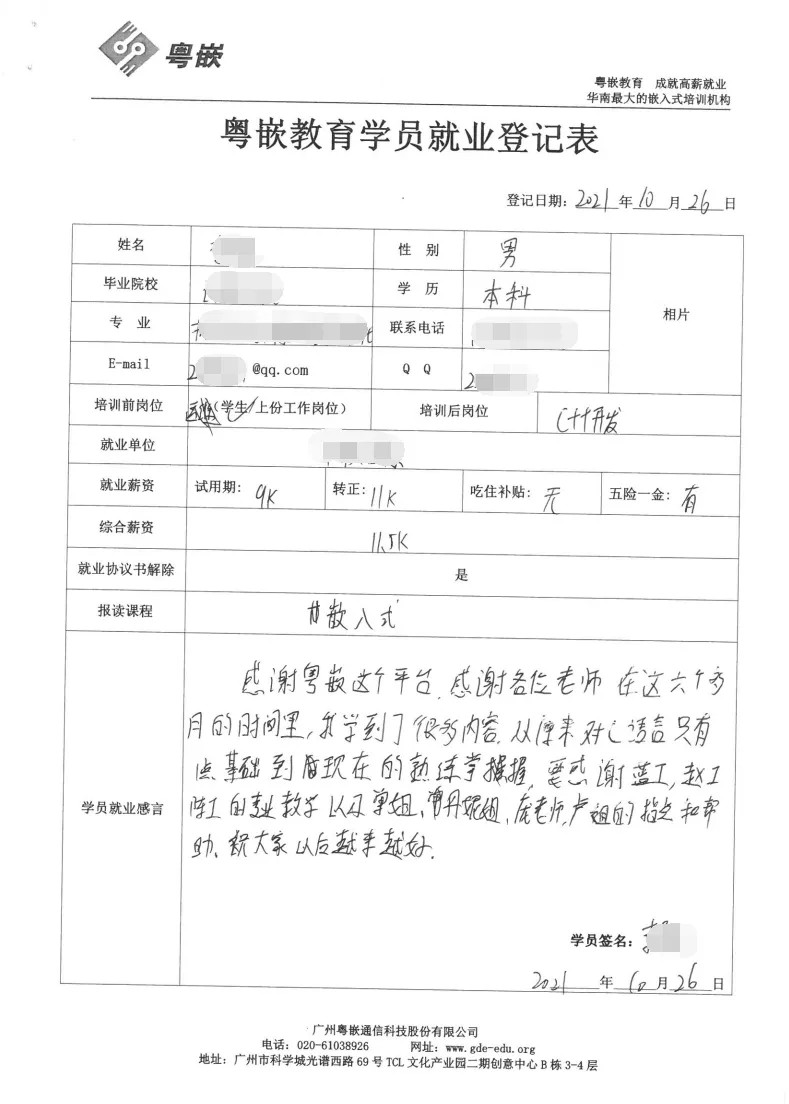 粤嵌
粤嵌教育 成就高薪就业
华南最大的嵌入式培训机构
粤嵌教育学员就业登记表
登记日期：2021年10月26日
姓名 性 别 男 相片
毕业院校 学 历 本科
专 业 联系电话
E-mail 2 @qq.com Q Q 2
培训前岗位 (学生/上份工作岗位) 培训后岗位 C++开发
就业单位
就业薪资 试用期：9K 转正：11K 吃住补贴：无 五险一金：有
综合薪资 11.5K
就业协议书解除 是
报读课程 嵌入式
学员就业感言
感谢粤嵌这个平台，感谢各位老师 在这六个多
月的时间里，我学到了很多内容，从原来对C语言只有
点基础到现在的熟练掌握，要感谢蓝工，赵工
陈工的专业教学以及 姐、曾丹妮姐、庞老师，卢姐的指点和帮
助、祝大家以后越来越好.
学员签名：
2021 年 10 月 26 日
广州粤嵌通信科技股份有限公司
电话：020-61038926 网址：www.gde-edu.org
地址：广州市科学城光谱西路 69 号 TCL 文化产业园二期创意中心 B 栋 3-4 层